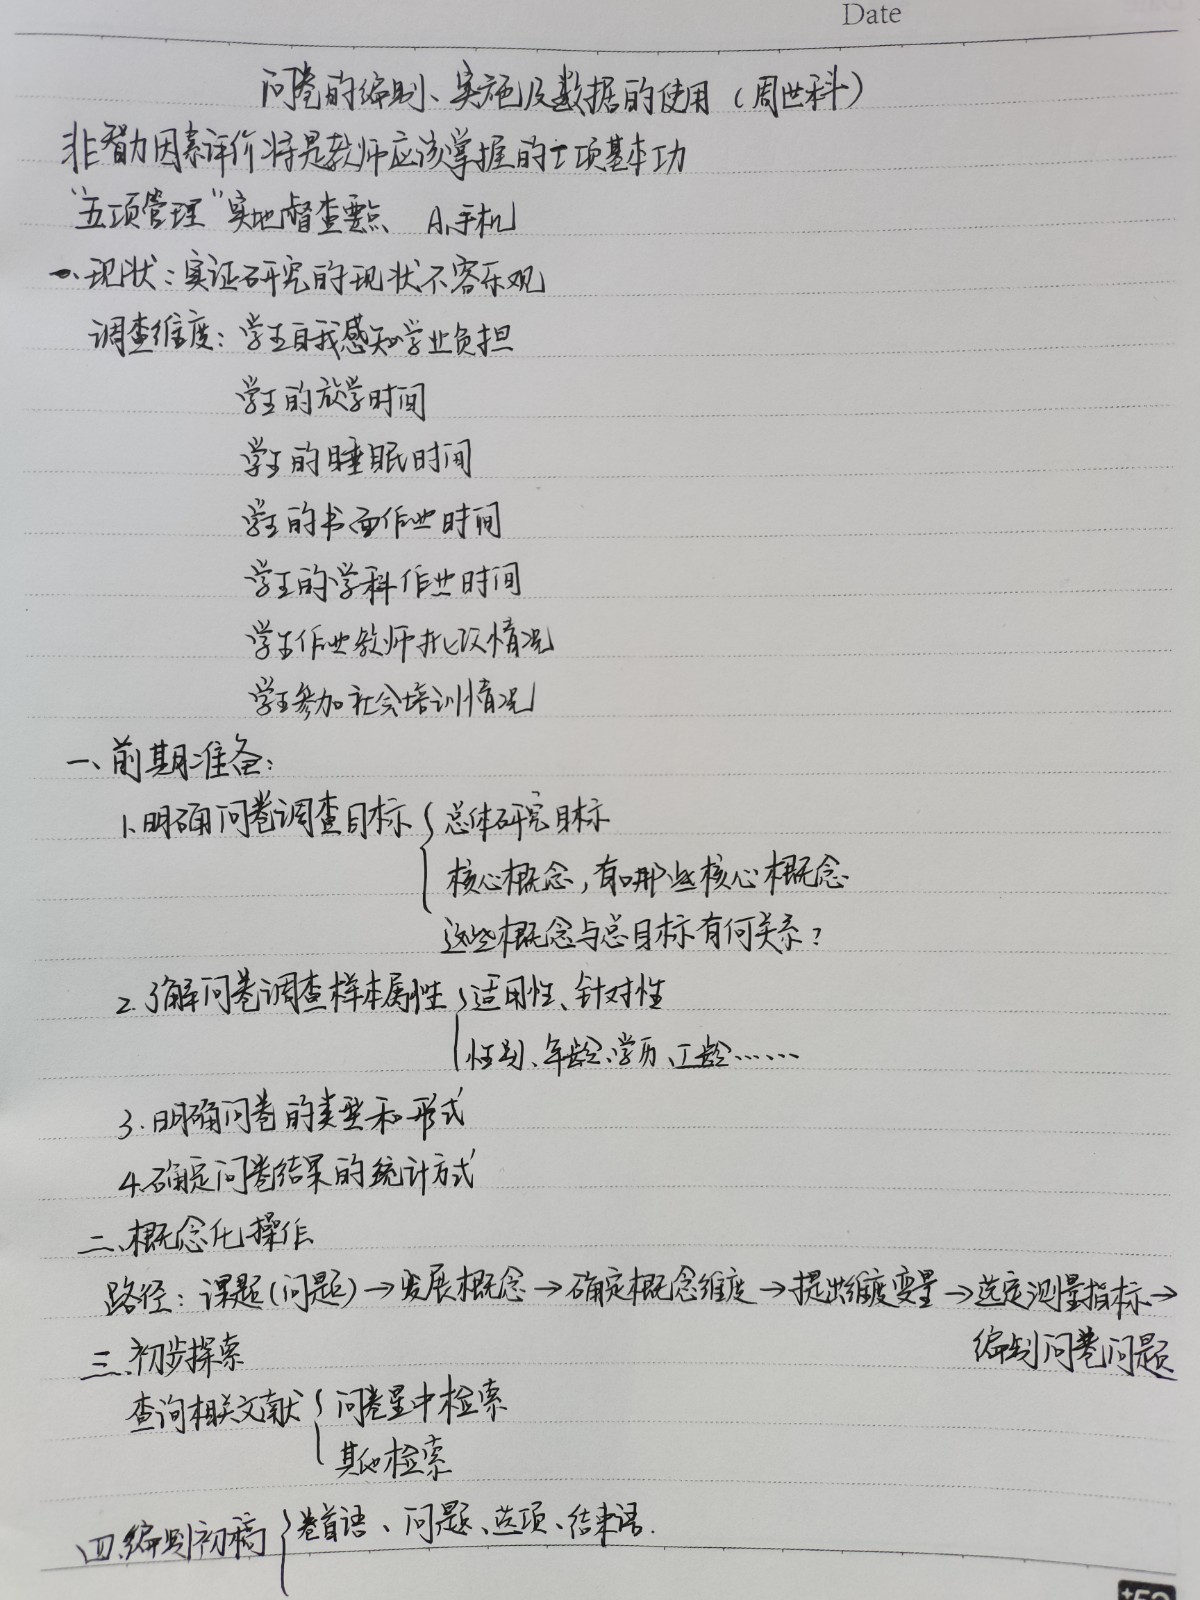 Date
问卷的编制、实施及数据的使用（周世科）
非智力因素评价将是教师应该掌握的一项基本功
“五项管理”实地督查要点 A.手机
一.现状：实证研究的现状不容乐观
调查维度：学生自我感知学业负担
学生的放学时间
学生的睡眠时间
学生的书面作业时间
学生的学科作业时间
学生作业教师批改情况
学生参加社会培训情况
一、前期准备：
1.明确问卷调查目标 { 总体研究目标
核心概念，有哪些核心概念
这些概念与总目标有何关系？
2.了解问卷调查样本属性 { 适用性、针对性
性别、年龄、学历、工龄……
3.明确问卷的类型和形式
4.确定问卷结果的统计方式
二、概念化操作
路径：课题(问题)→发展概念→确定概念维度→提出维度变量→选定测量指标→
编制问卷问题
三、初步探索
查询相关文献 { 问卷星中检索
其他检索
四、编制初稿 { 卷首语、问题、选项、结束语.